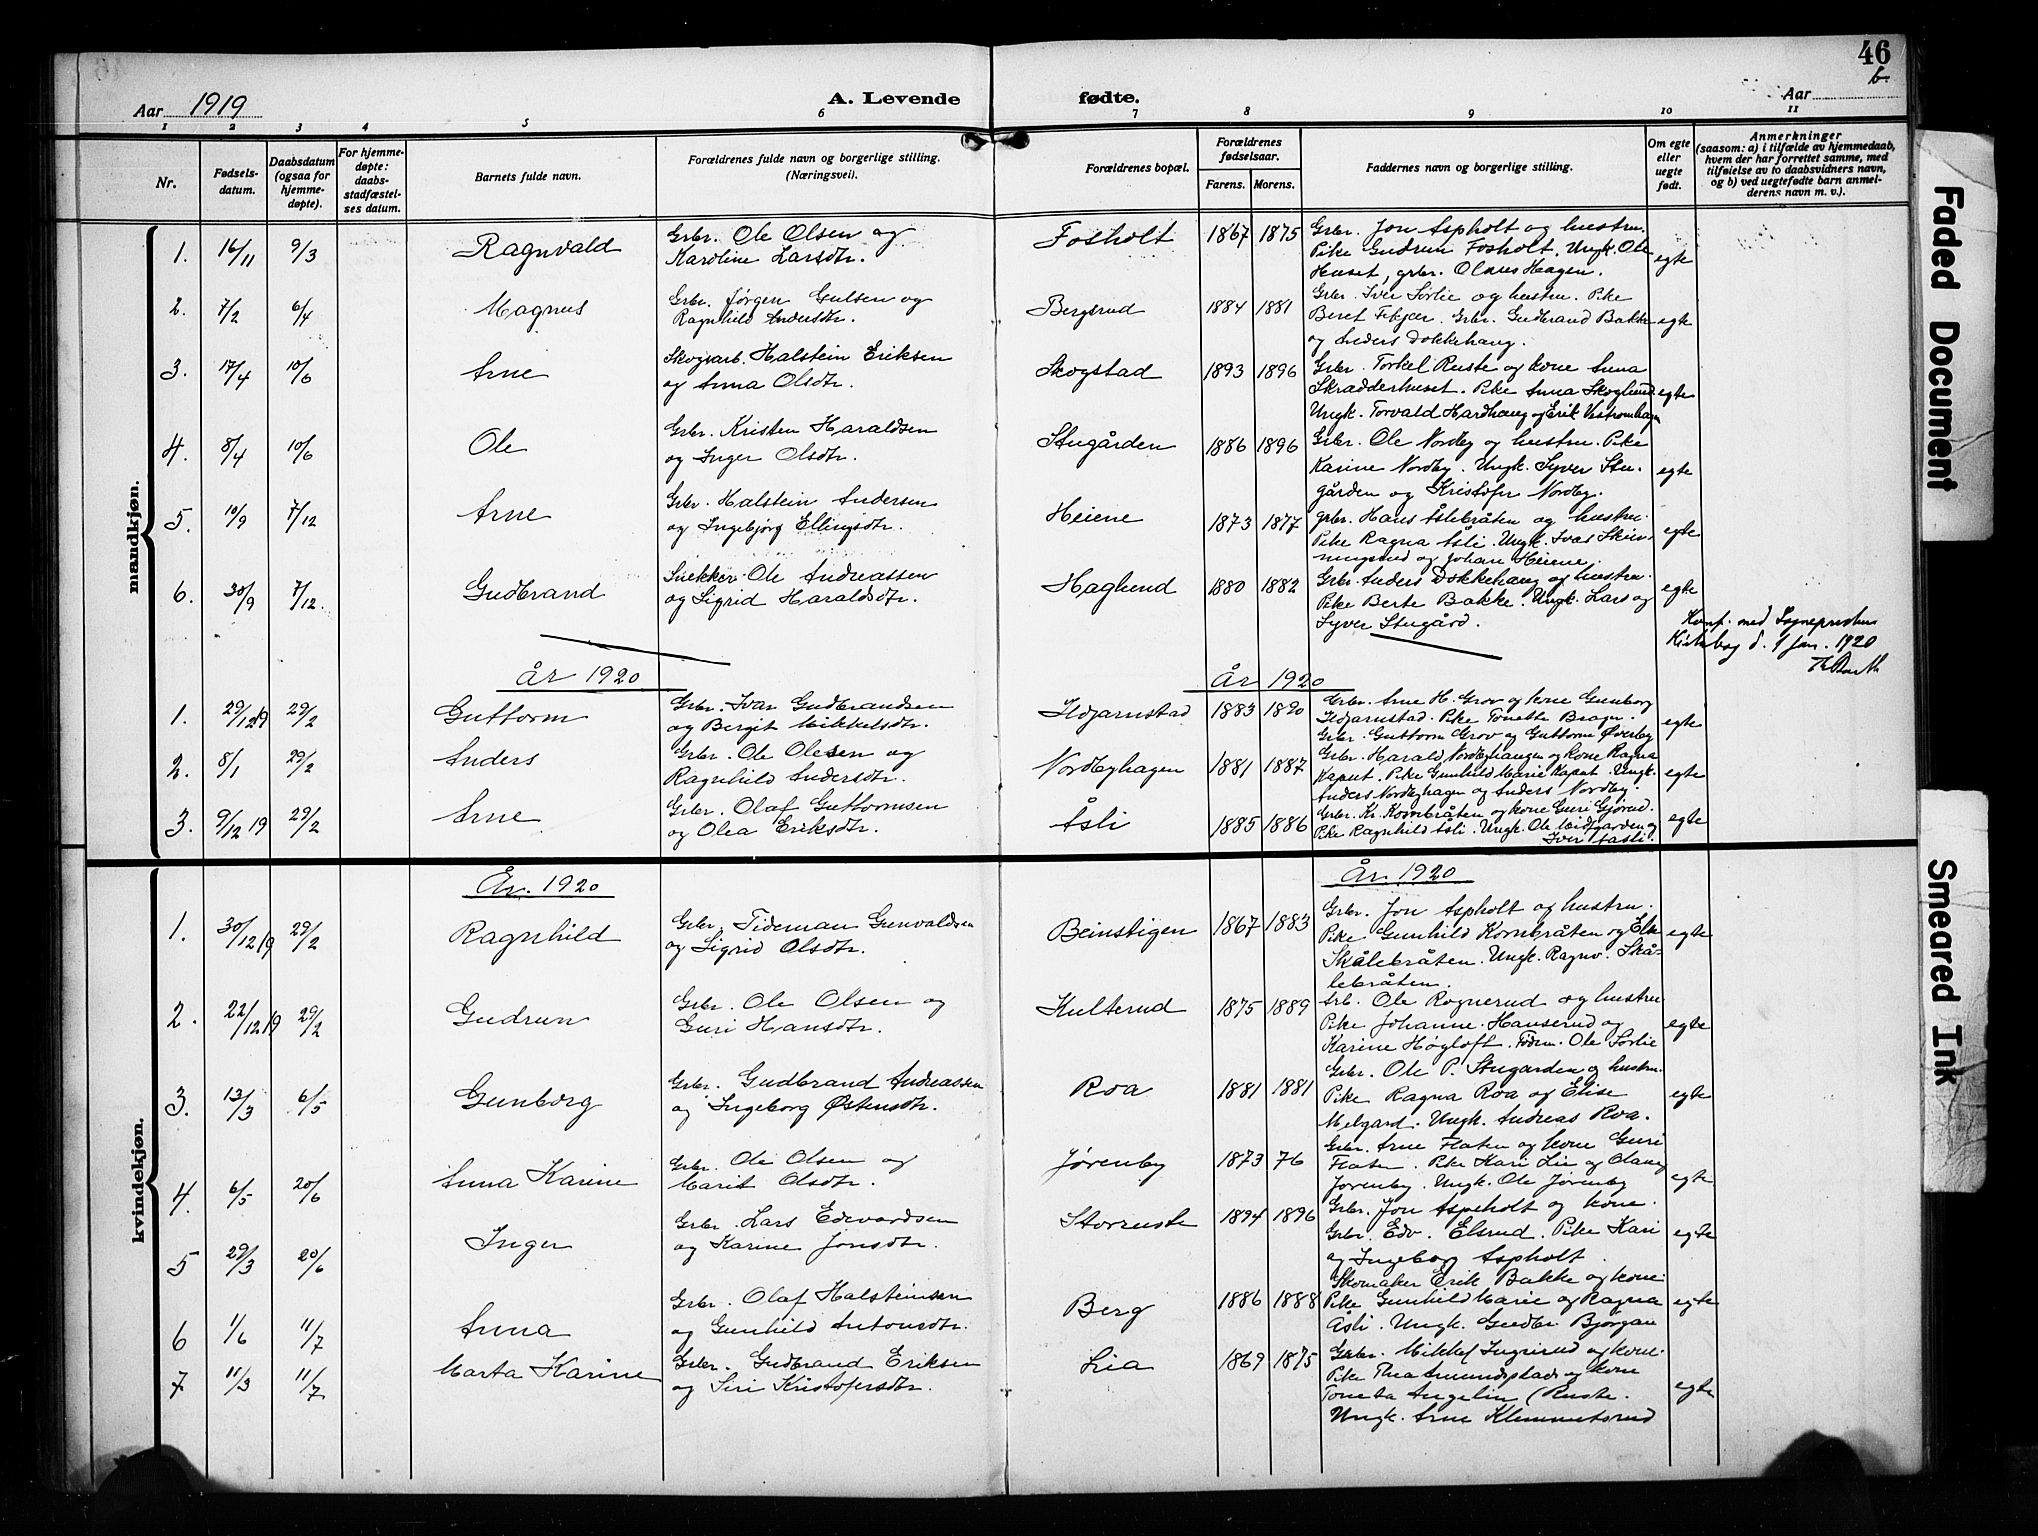 46
b.
Aar 1919
A. Levende fødte.
Aar
1 2 3 4 5 6 7 8 9 10 11
Nr.
Fødsels-
datum.
Daabsdatum
(ogsaa for
hjemme-
døpte).
For hjemme-
døpte:
daabs-
stadfæstel-
ses datum.
Barnets fulde navn.
Forældrenes fulde navn og borgerlige stilling.
(Næringsvei).
Forældrenes bopæl.
Forældrenes
fødselsaar.
Farens. Morens.
Faddernes navn og borgerlige stilling.
Om egte
eller
uegte
født.
Anmerkninger
(saasom: a) i tilfælde av hjemmedaab,
hvem der har forrettet samme, med
tilføielse av to daabsvidners navn,
og b) ved uegtefødte barn anmel-
derens navn m. v.).
mandkjøn.
1. 16/11 9/3 Ragnvald
Grbr. Ole Olsen og
Karoline Larsdtr.
Fosholt 1867 1875
Grbr. Jon Aspholt og hustru.
Pike Gudrun Fosholt. Ungk. Ole
Huset, grbr. Olaves Hagen.
egte
2. 7/2 6/4 Magnus
Grbr. Jørgen Gulsen og
Ragnhild Andersdtr.
Bergsrud 1884 1881
Grbr. Iver Sørlie og hustru. Pike
Beret Fekjær. Grbr. Gudbrand Bakke
og Anders Dokkehaug.
egte
3. 17/4 10/6 Arne
Skogsarb. Halstein Eriksen
og Anna Olsdtr.
Skogstad 1893 1896
Grbr. Torkel Ruste og kone Anna
Skradderhuset. Pike Anna Skoglund
Ungk. Torvald Hardhaug og Erik
egte
4. 8/4 10/6 Ole
Grbr. Kristen Haraldsen
og Inger Olsdtr.
Stugården 1886 1896
Grbr. Ole Nordby og hustru. Pike
Karine Nordby. Ungk. Syver Stu-
gården og Kristofer Nordby.
egte
5. 10/9 7/12 Arne
Grbr. Halstein Andersen
og Ingebjørg Ellingsdtr.
Heiene 1873 1877
grbr. Hans Åslebråten og hustru.
Pike Ragna Åsli. Ungk. Ivar
og Johan Heiene.
egte
6. 30/9 7/12. Gudbrand
Snekker Ole Andreassen
og Sigrid Haraldsdtr.
Haglund 1880 1882
Grbr. Anders Dokkehaug og hustru.
Pike Berte Bakke. Ungk. Lars og
Syver Stugård.
egte
Konf. med Sogneprestens
Kirkebog d. 9 Jan. 1920
Th Barth
År 1920
År 1920
1. 29/12 19 29/2 Guttorm
Grbr. Ivar Gudbrandsen
og Bergit Mikkelsdtr.
Ildjarnstad 1883 1890
Grbr. Arne H. Grov og kone Gunborg
Ildjarnstad. Pike Tonette Bragn.
Grbr. Guttorm Grov og Guttorm Øverby
egte
2. 8/1 29/2 Anders
Grbr. Ole Olesen og
Ragnhild Andersdtr.
Nordbyhagen 1881 1887
Grbr. Harald Nordbyhaugen og kone Ragna
Kaput. Pike Gunhild Marie Kaput. Ungk.
Anders Nordbyhagen og Anders Nordby.
egte
3. 9/12 19 29/2 Arne
Grbr. Olaf Guttormsen
og Olea Eriksdtr.
Åsli 1885 1886
Grbr. Kr. Kornbråten og kone Guri Gjørud.
Pike Ragnhild Åsli. Ungk. Ole Midtgarden og
Iver Aasli.
egte
kvindekjøn.
År. 1920
År 1920
1. 30/12 19 29/2 Ragnhild
Grbr. Tideman Gunvaldsen
og Sigrid Olsdtr.
Beinstigen 1867 1883
Grbr. Jon Aspholt og hustru.
Pike Gunhild Kornbråten og
Skålebråten. Ungk. Ragnv. Skå-
lebråten.
egte
2. 22/12 19 29/2 Gudrun
Grbr. Ole Olsen og
Guri Hansdtr.
Kulterud 1875 1889
Arb. Ole Rognerud og hustru
Pike Johanne Hanserud og
Karine Høgloft. Tidem. Ole Sørlie
egte
3. 13/3 6/5 Gunborg
Grbr. Gudbrand Andreassen
og Ingeborg Østensdtr.
Roa 1881 1881
Grbr. Ole P. Stugarden og hustru.
Pike Ragna Roa og Elise
Melgard. Ungk. Andreas Roa.
egte
4. 6/5 20/6 Anna Karine
Grbr. Ole Olsen og
Marit Olsdtr.
Jørenby 1873 76
Grbr. Arne Flaten og kone Guri
Flaten. Pike Kari Lie og Olaug
Jørenby. Ungk. Ole Jørenby
egte
5 29/3 20/6 Inger
Grbr. Lars Edvardsen
og Karine Jonsdtr.
Storruste 1894 1896
Grbr. Jon Aspeholt og kone.
Grbr. Edv. Elsrud. Pike Kari
og Ingeborg Aspholt.
egte
6 1/6 11/7 Anna
Grbr. Olaf Halsteinsen
og Gunhild Antonsdtr.
Berg 1886 1888
Skomaker Erik Bakke og kone.
Pike Gunhild Marie og Ragna
Åsli. Ungk. Gudbr. Bjørgan
egte
7 11/3 11/7 Marta Karine
Grbr. Gudbrand Eriksen
og Siri Kristofersdtr.
Lia 1869 1875
Grbr. Mikkel Ingrirud og kone.
Pike Thea Amundstad og kone
Toneta Angelin (Ruste.
Ungk. Arne Klemmetsrud
egte
Faded Document
Smeared Ink